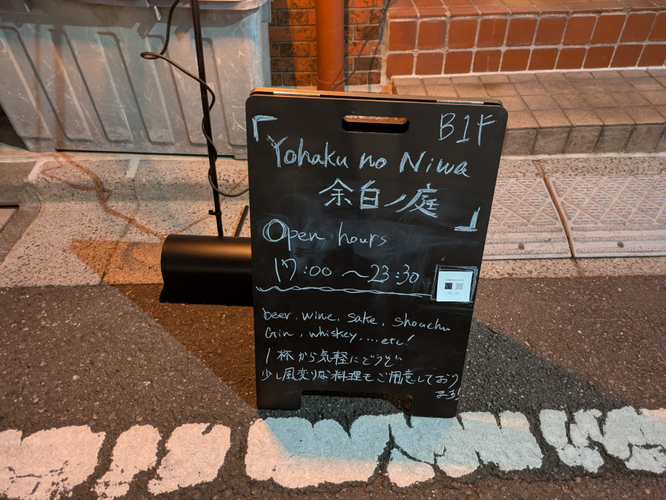 「 B1F
Yohaku no Niwa
余白ノ庭 」
Open hours
17:00 ～23:30
beer, wine, sake, shouchu
Gin, whiskey, ....etc!
1杯から気軽にどうぞ
少し風変りな料理もご用意しており
ます!